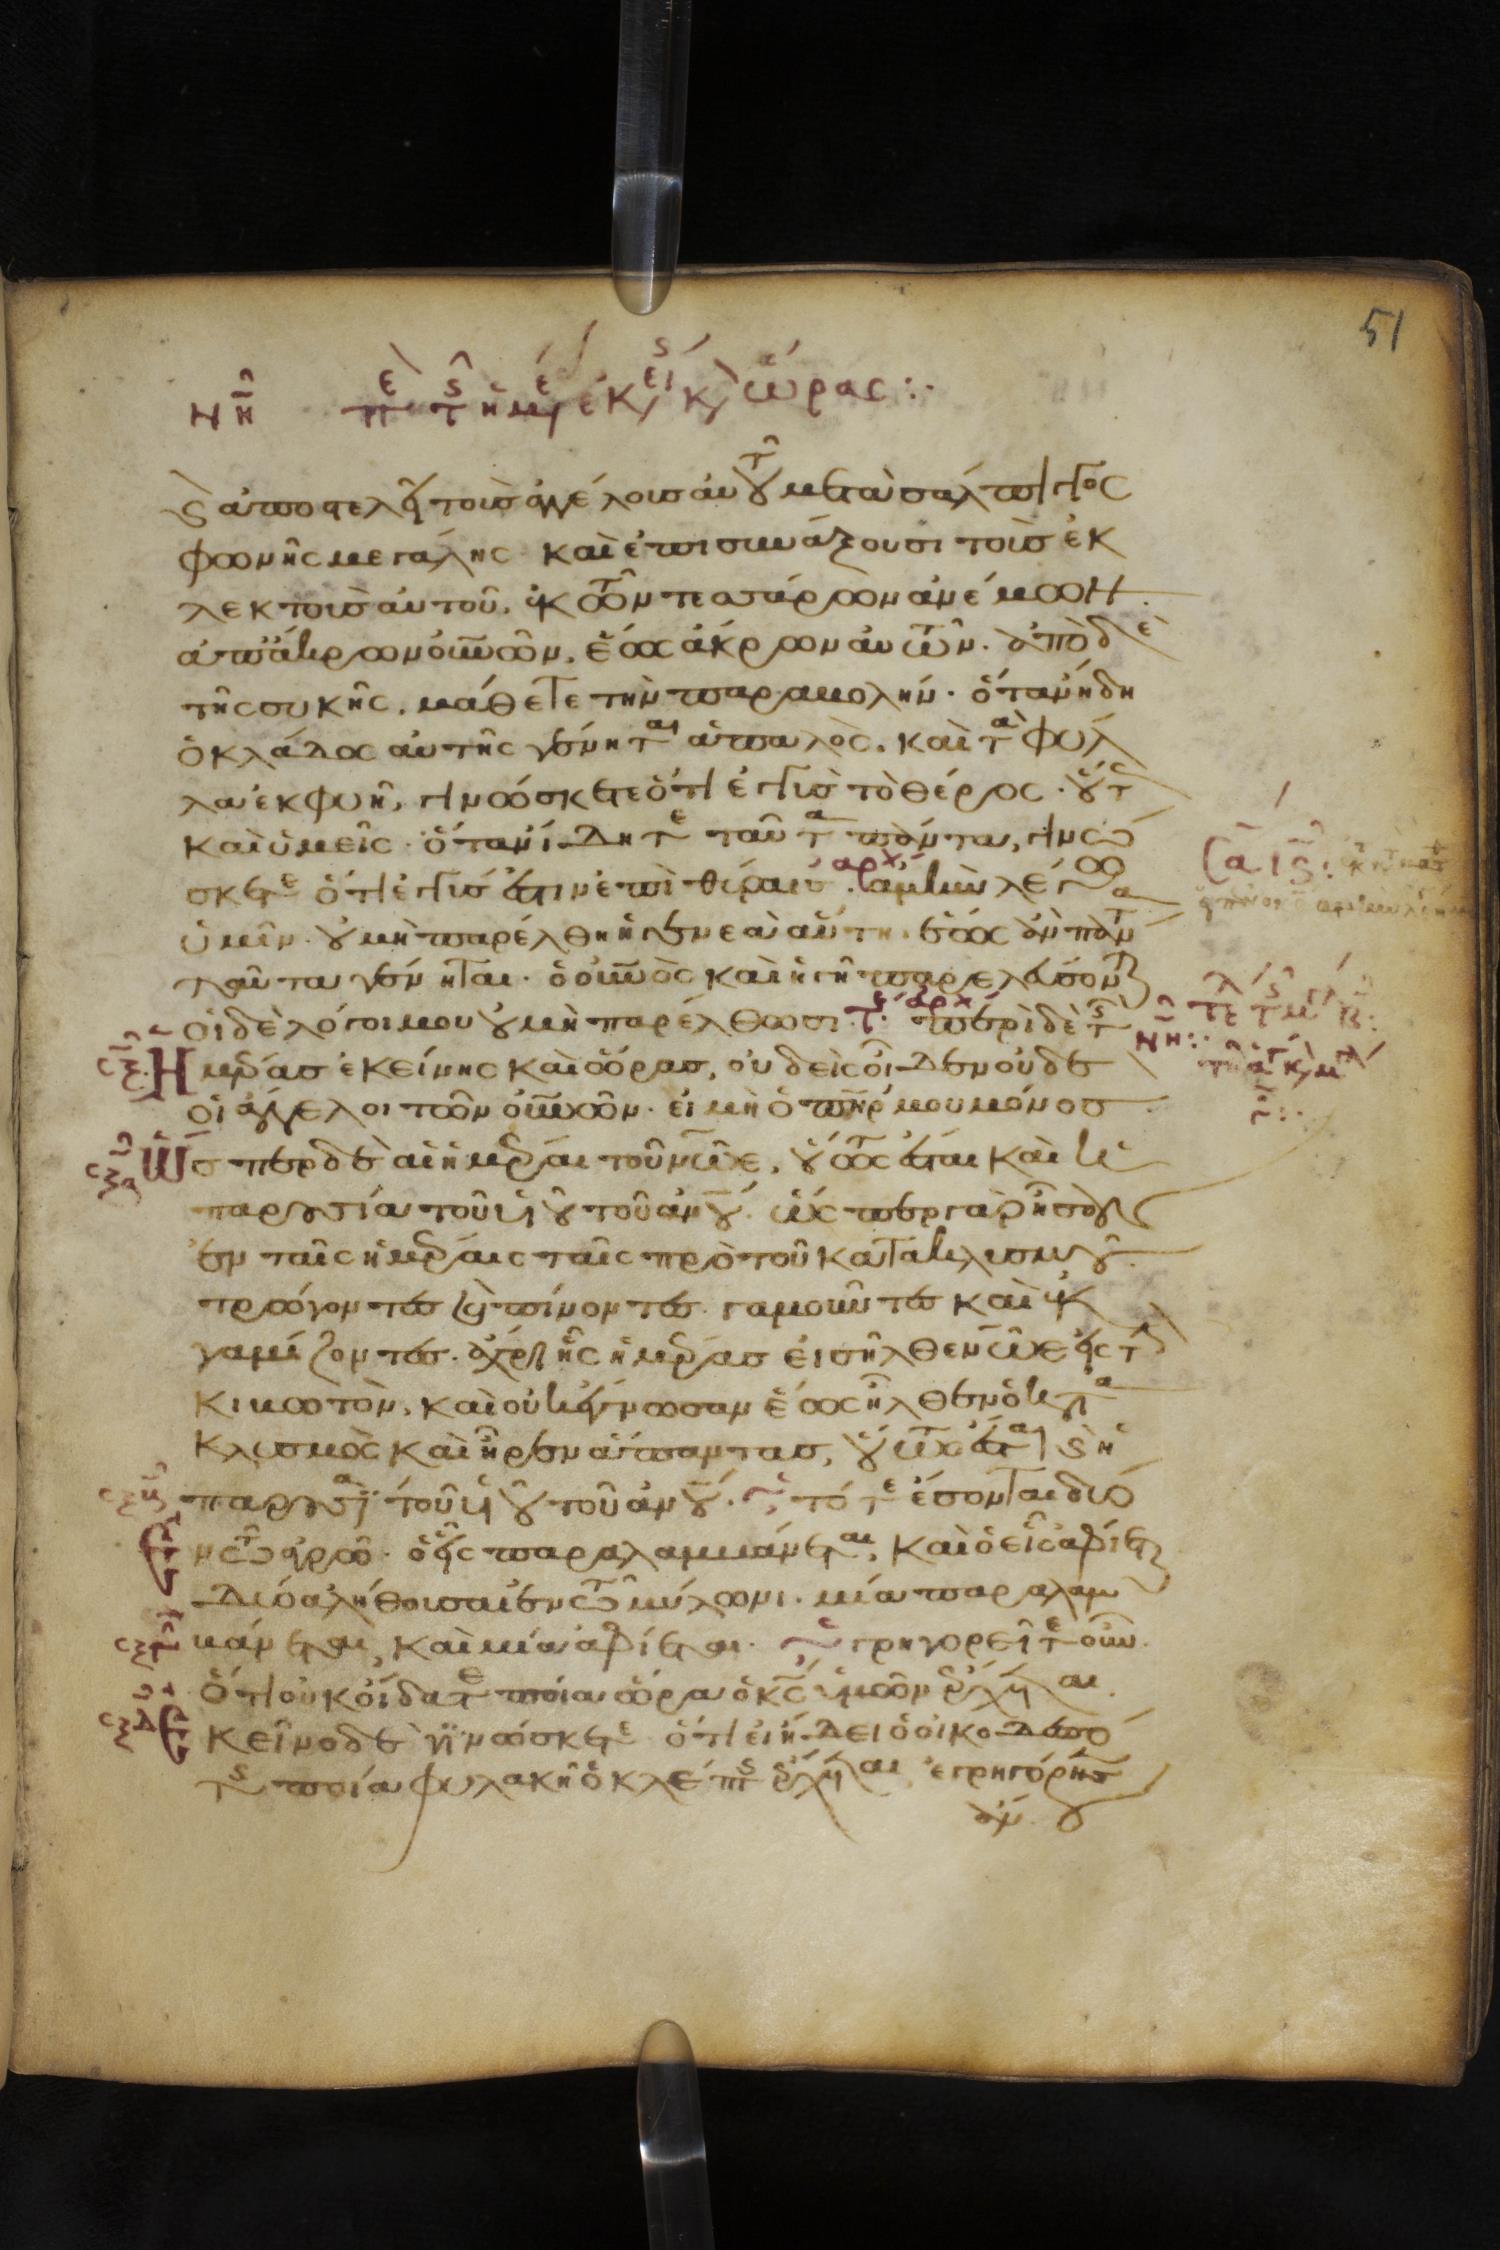 51
νη περι της ημερ εκει κ ωρας :·
κ(αὶ) ἀποστελεῖ τοὺς ἀγγέλους αὐτοῦ μετὰ σάλπιγγος
φωνῆς μεγάλης· καὶ ἐπισυνάξουσι τοὺς ἐκ
λεκτοὺς αὐτοῦ, ἐκ τῶν τεσσάρων ἀνέμων
ἀπ' ἄκρων οὐνῶν, ἕως ἄκρων αὐτῶν. ἀπὸ δὲ
τῆς συκῆς, μάθετε τὴν παραβολήν· ὅταν ἤδη
ὁ κλάδος αὐτῆς γένηται ἁπαλὸς, καὶ τὰ φύλ
λα ἐκφυῆ, γινώσκετε ὅτι ἐγγὺς τὸ θέρος· οὕτως
καὶ ὑμεῖς· ὅταν ἴδητε ταῦτα πάντα, γινώ
σκετε ὅτι ἐγγύς ἐστιν ἐπὶ θύραις. αρχ ἀμὴν λέγω
ὑμῖν· οὐ μὴ παρέλθη ἡ γενεὰ αὕτη· ἕως ἂν πάντα
ταῦτα γένηται· ὁ οὐνὸς καὶ ἡ γῆ παρελεύσονται
οἱ δὲ λόγοι μου οὐ μὴ παρέλθωσι. τε αρχ περὶ δὲ τῆς
Ἡμέρας ἐκείνης καὶ ὥρας, οὐδεὶς οἶδεν οὐδὲ
οἱ ἄγγελοι τῶν οὐνῶν· εἰ μὴ ὁ πηρ μου μόνος
Ὥσπερ δὲ αἱ ἡμέραι τοῦ νῶε, οὕτως ἔσται καὶ ἡ
παρουσία τοῦ υἱοῦ τοῦ ἀνου. ὥσπερ γὰρ ἦσαν
ἐν ταῖς ἡμέραις ταῖς πρὸ τοῦ κατακλυσμοῦ
τρώγοντες κ(αὶ) πίνοντες· γαμοῦντες καὶ ἐκ
γαμίζοντες· ἄχρι ἧς ἡμέρας εἰσῆλθεν νῶε εἰς τὴν
κιβωτὸν, καὶ οὐκ ἔγνωσαν ἕως ἦλθεν ὁ κατα
κλυσμὸς καὶ ἦρεν ἅπαντας, οὕτως ἔσται κ(αὶ) ἡ
παρουσία τοῦ υἱοῦ τοῦ ἀνου. τότε ἔσονται δύο
ἐν τῷ ἀγρῷ· ὁ εἷς παραλαμβάνεται, καὶ ὁ εἷς ἀφίεται
δύο ἀλήθουσαι ἐν τῷ μύλωνι· μία παραλαμ
βάνεται, καὶ μία ἀφίεται. γρηγορεῖτε οὖν.
ὅτι οὐκ οἴδατε ποία ὥρα ὁ κς ὑμῶν ἔρχεται.
Ἐκεῖνο δὲ γινώσκετε ὅτι εἰ ἤδει ὁ οἰκοδεσπό
της ποία φυλακῆ ὁ κλέπτης ἔρχεται ἐγρηγόρησεν
ἄν. οὐ